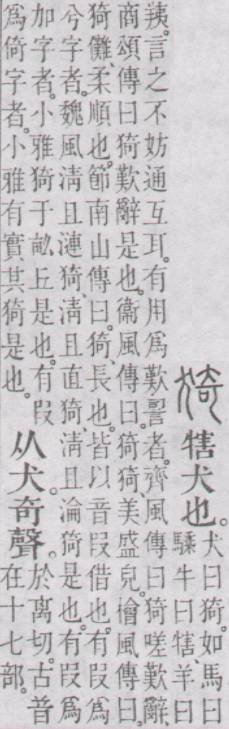 猗 犗犬也。
犬曰猗。如馬曰
騬、牛曰犗、羊曰
羠。言之不妨通互耳。有用爲歎䛐者。齊風傳曰猗嗟歎辭、
商頌傳曰猗歎辭是也。衞風傳曰。猗猗美盛皃。檜風傳曰。
猗儺、柔順也。節南山傳曰。猗長也。皆以音叚借也。有叚爲
兮字者。魏風淸且漣猗、淸且直猗、淸且淪猗是也。有叚爲
加字者。小雅猗于畝丘是也。有叚
爲倚字者。小雅有實其猗是也。
从犬。奇聲。
於离切。古音
在十七部。